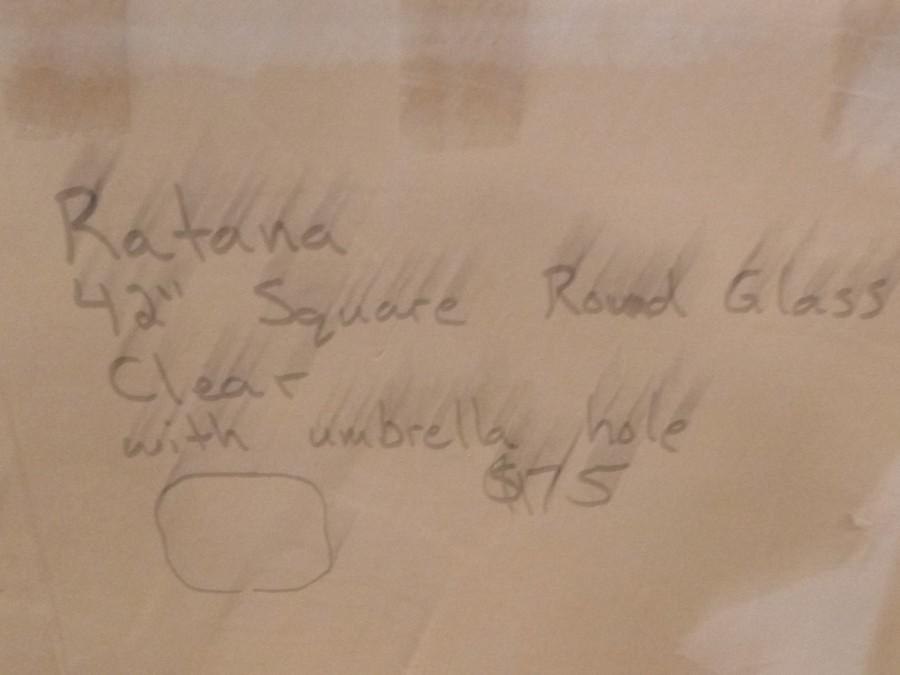 Ratana
42" Square Round Glass
Clear
with umbrella hole
$75